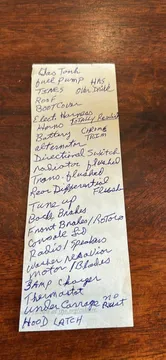 Gas Tank
fuel Pump HAS
TEARS Over Drive
Roof
BOOT COVER
Elect Harness
Horns Totally Rewired
Battery CHROME TRIM
alternator
Directional Switch
radiator flushed
Trans. flushed
Rear Differential Flush
Tune up
Back Brakes
Front Brakes/Rotors
Console Lid
Radio/Speakers
Washer reservoir
Motor/Blades
3 AMP Charger
Thermostat
under Carrage NO RUST
HOOD LATCH